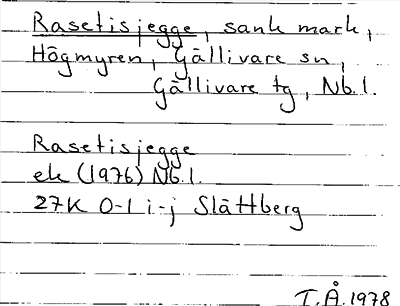 Rasetisjegge, sank mark,
Högmyren, Gällivare sn,
Gällivare tg, Nb.l.
Rasetisjegge
ek (1976) Nb.l.
27K 0-1 i-j Slättberg
T.Å. 1978